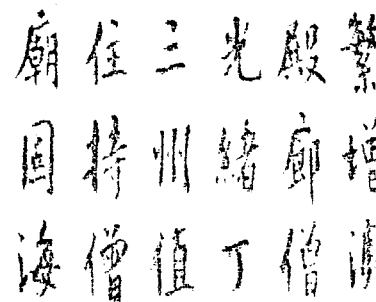 繁增
殿廊僧
光緒丁
三州值
住持僧
廟固海